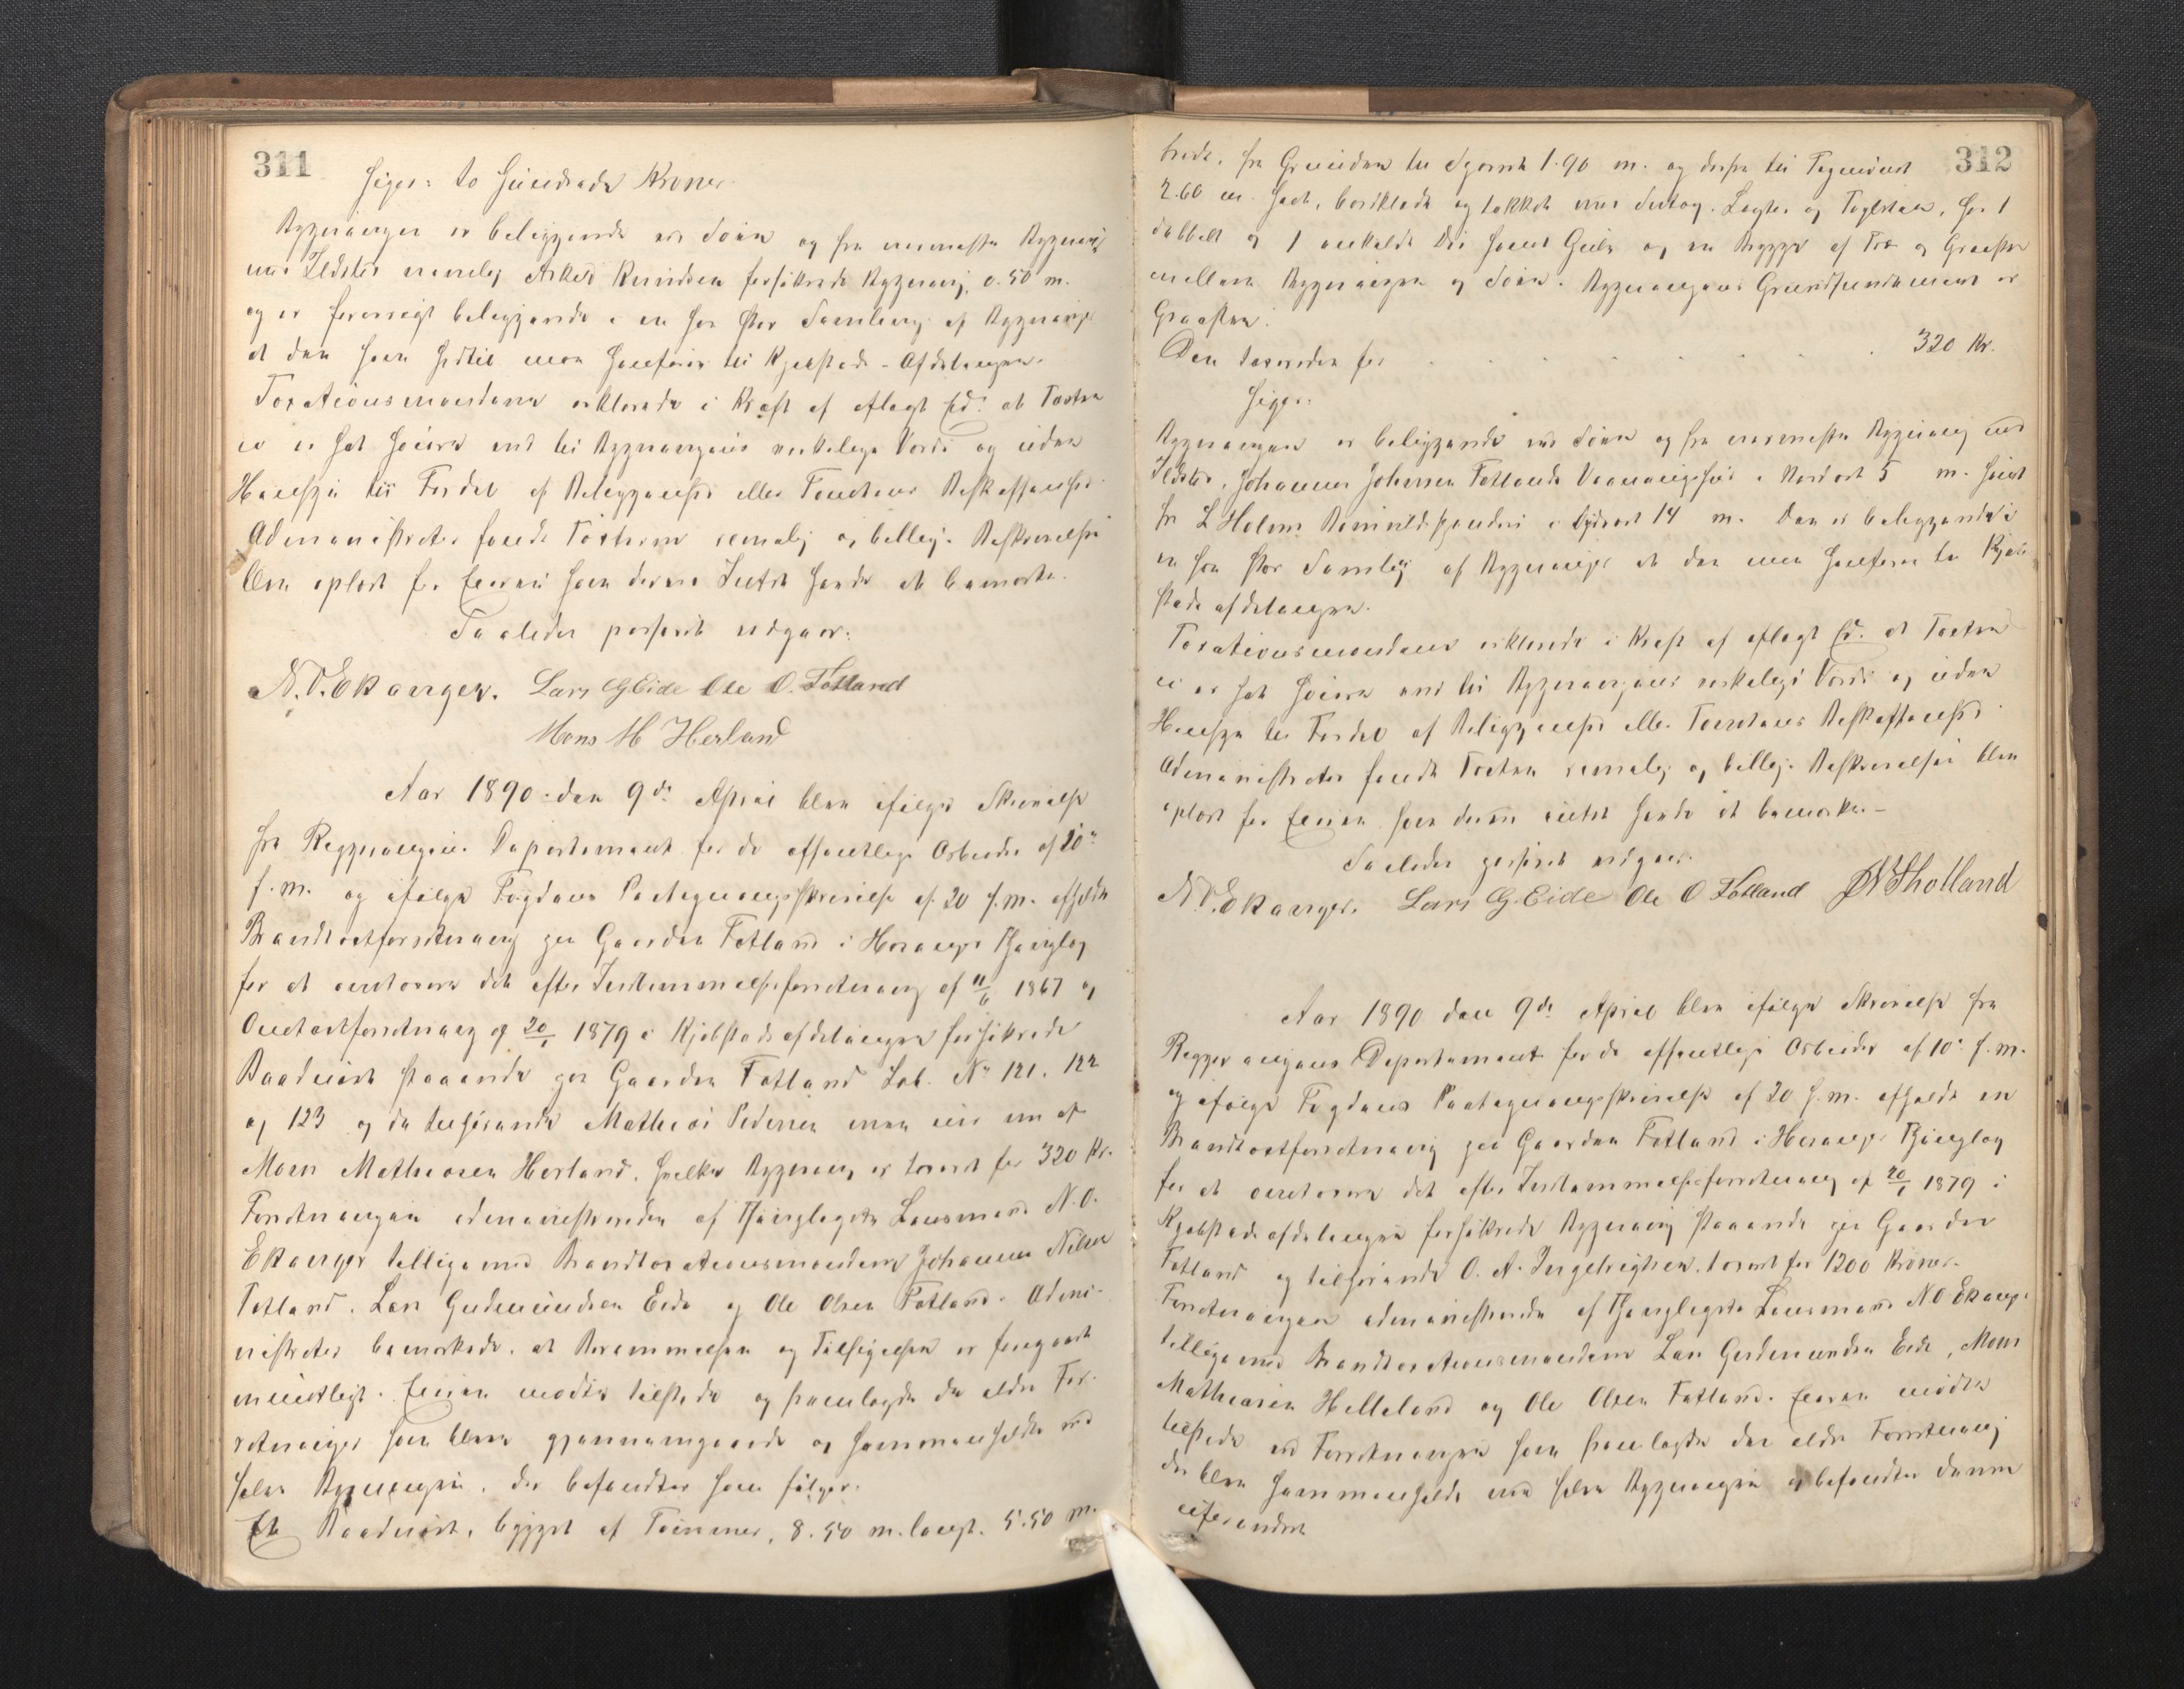 311
siger: to Hundrede Kroner.
Bygningen er beliggende ved Søen og fra nærmeste Bygning
med Ildsted nemlig Askild Knudsen forsikrede Bygning, 0.50 m.
og er forøvrigt beliggende i en saa stor Samling af Bygninger
at den som hidtil maa henføres til Kjøbstads-Afdelingen.
Taxationsmændene erklærede i Kraft af aflagt Ed: at Taxten
ei er sat høiere end til Bygningens virkelige Værdi og uden
Hensyn til Fordel af Beliggenhed eller Tomtens Beskaffenhed.
Administrator fandt Taxterne rimelig og billig. Beskrivelsen
blev oplæst for Eieren som derved Intet havde at bemærke.
Saaledes passeret udgaar:
N. O. Ekanger. Lars G Eide Ole O. Fotland
Mons M Herland
Aar 1890 den 9de April blev ifølge Skrivelse
fra Regjeringens Departement for de offentlige Arbeider af 10de
f.m. og ifølge Fogdens Paategningsskrivelse af 20 f.m. afholdt
Brandtaxtforretning paa Gaarden Fotland i Hosanger Thinglag
for at omtaxere det efter Indlemmelsesforretning af 11/6 1867 og
Omtaxtforretning af 20/1 1879 i Kjøbstadsafdelingen forsikrede
Baadnøst staaende paa Gaarden Fotland Løb. No 121. 122
og 123 og da tilhørende Mathias Pedersen men nu eies af
Mons Mathiasen Herland, hvilken Bygning er taxeret for 320 Kr.
Forretningen administreredes af Thinglagets Lensmand N. O.
Ekanger tilligemed Brandtaxationsmændene Johannes Nilsen
Fotland. Lars Gudmundsen Eide og Ole Olsen Fotland. Admi-
nistrator bemærkede, at Berammelsen og Tilsigelsen er foregaaet
mundtligt. Eieren mødte tilstede og fremlagde de ældre For-
retninger som bleve gjennemgaaede og sammenholdte med
selve Bygningen, der befandtes som følger:
Et Baadnøst, bygget af Tømmer, 8.50 m. langt. 5.50 m.
312
bredt. fra Grunden til Sperret 1.90 m. og derfra til Tagmønet
2.60 m. høit, bordklædt og tækket med Sutag. Lægter og Taglsten, har 1
dobbelt og 1 enkelt Dør samt Gulv og en Brygge af Træ og Graasten
mellem Bygningen og Søen. Bygningens Grundfundament er
Graasten.
Den taxeredes for . . . . . . . . 320 Kr.
Siger:
Bygningen er beliggende ved Søen og fra nærmeste Bygning med
Ildsted, Johannes Johnsen Fotlands Vaaningshus i Nordost 5 m. samt
fra L Holms Bomuldsspinderi i Sydvest 14 m. Den er beliggende i
en saa stor Samling af Bygninger at den maa henføres til Kjøb-
stadsafdelingen.
Taxationsmændene erklærede i Kraft af aflagt Ed. at Taxten
ei er sat høiere end til Bygningens virkelige Værdi og uden
Hensyn til Fordel af Beliggenhed eller Tomtens Beskaffenhed.
Administrator fandt Taxten rimelig og billig. Beskrivelsen blev
oplæst for Eieren som derved intet havde at bemærke.-
Saaledes passeret udgaar.
N. O. Ekanger. Lars G. Eide Ole O Fotland
Aar 1890 den 9de April blev ifølge Skrivelse fra
Regjeringens Departement for de offentlige Arbeider af 10de f.m.
og ifølge Fogdens Paategningsskrivelse af 20 f.m. afholdt en
Brandtaxtforretning paa Gaarden Fotland i Hosanger Thinglag
for at omtaxere det efter Indlemmelsesforretning af 20/1 1879 i
Kjøbstadsafdelingen forsikrede Bygning staaende paa Gaarden
Fotland og tilhørende O. A. Ingebrigtsen. taxeret for 1200 Kroner.
Forretningen administreredes af Thinglagets Lensmand N O Ekanger
tilligemed Brandtaxationsmændene Lars Gudmundsen Eide, Mons
Mathiasen Helleland og Ole Olsen Fotland. Eieren mødte
tilstede ved Forretningen som fremlagde den ældre Forretning
der blev sammenholdt med selve Bygningen og befandtes denne
uforandret